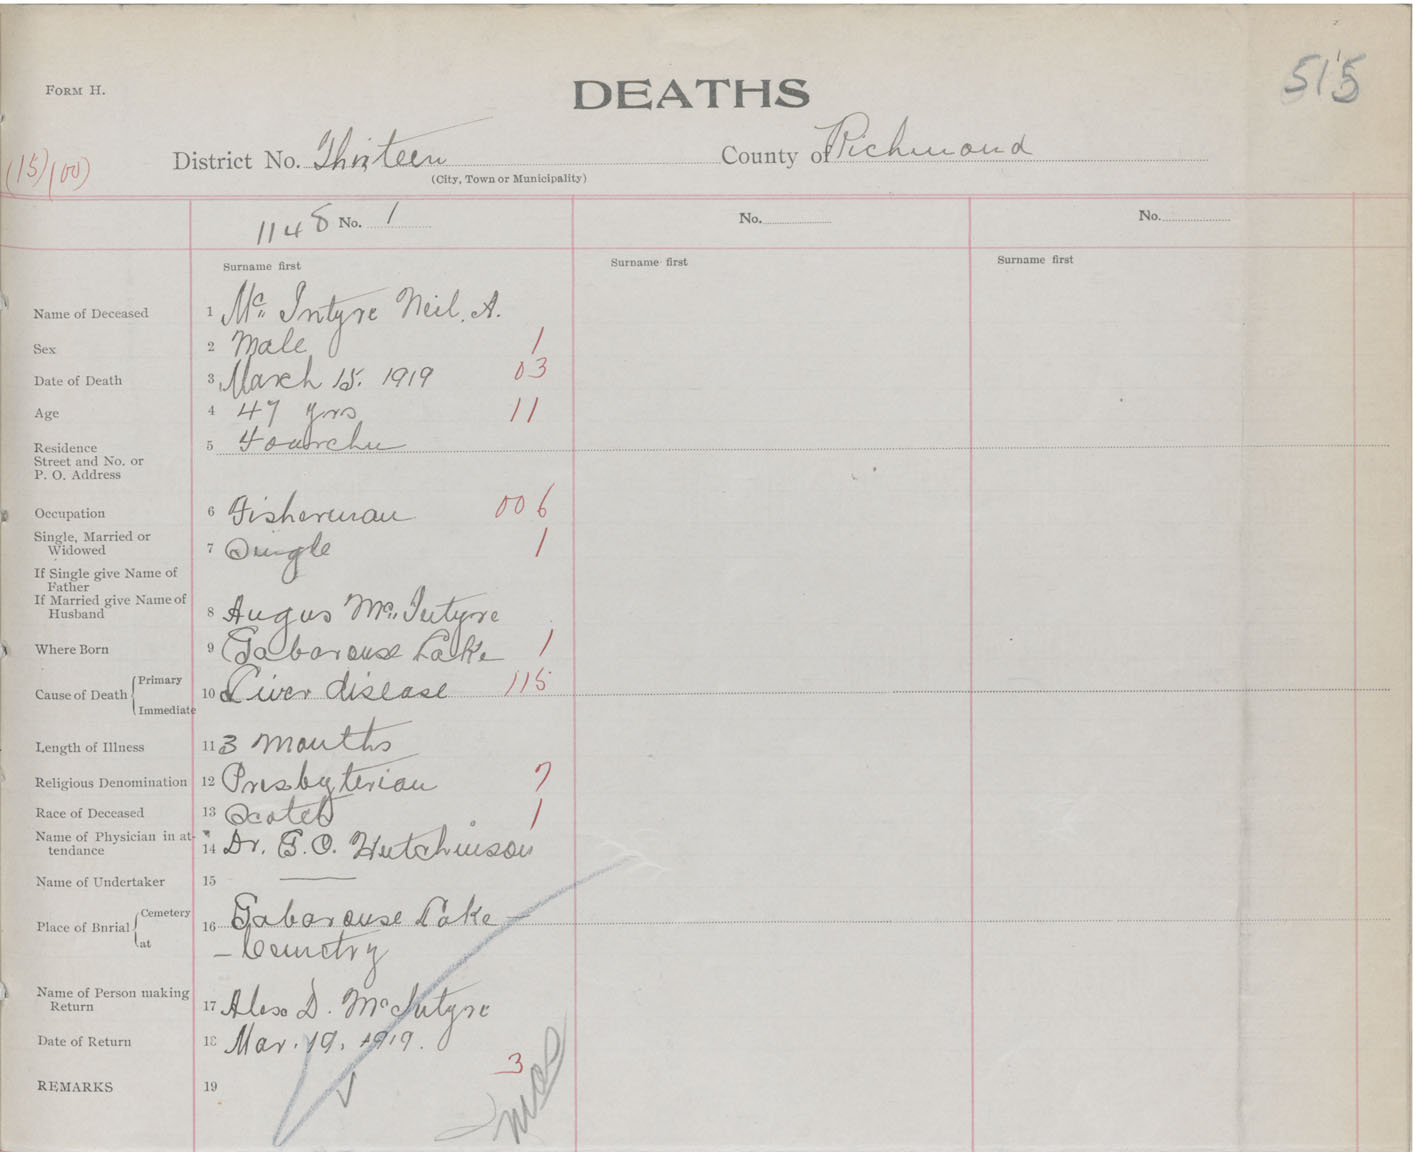 FORM H.
DEATHS
515
(15)(00)
District No. Thirteen County of Richmond
(City, Town or Municipality)
1148 No. 1 No. No.
Surname first Surname first Surname first
Name of Deceased 1 Mc Intyre Neil. A.
Sex 2 Male 1
Date of Death 3 March 15. 1919 03
Age 4 47 yrs 11
Residence 5 Fourchu
Street and No. or
P. O. Address
Occupation 6 Fisherman 006
Single, Married or
Widowed 7 Single 1
If Single give Name of
Father
If Married give Name of
Husband 8 Angus Mc Intyre
Where Born 9 Gabarouse Lake 1
Cause of Death Primary 10 Liver disease 115
Immediate
Length of Illness 11 3 Months
Religious Denomination 12 Presbyterian 7
Race of Deceased 13 Scotch 1
Name of Physician in at-
tendance 14 Dr. G. O. Hutchinson
Name of Undertaker 15 —
Place of Burial Cemetery 16 Gabarouse Lake —
at — Cemetry
Name of Person making
Return 17 Alex D. McIntyre
Date of Return 18 Mar. 19. 1919.
3
REMARKS 19